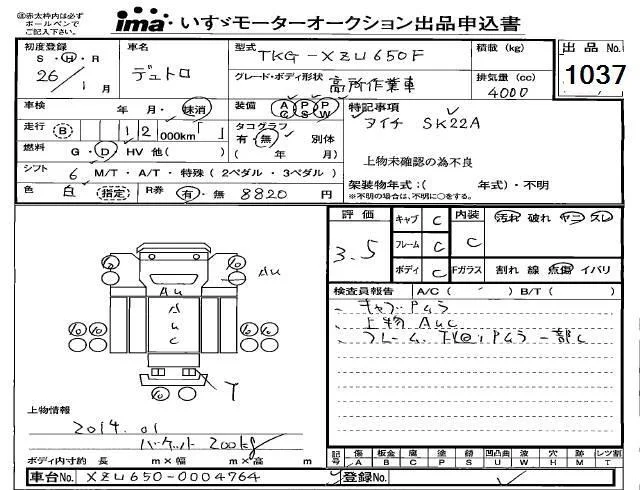 ㊟赤太枠内は必ず
ボールペンで
ご記入下さい。
ima いすゞモーターオークション出品申込書
初度登録 車名 型式 TKG-XZU650F 積載 (kg) 出品No.
S・H・R
26年 1月 デュトロ グレード・ボディ形状 高所作業車 排気量 (cc) 4000 1037
車検 年・月・抹消 装備 AC PS PW 特記事項
走行 (B) 12 000km「 」 タコグラフ 有・無 別体 タイチ SK22A
燃料 G・D HV 他( ) ( 年 月) 上物未確認の為不良
シフト 6 M/T・A/T・特殊(2ペダル・3ペダル) 架装物年式:( 年式)・不明
※不明の場合は、不明に○をする。
色 白 (指定) R券 有・無 8820 円
評価 3.5
キャブ C 内装 C 汚れ 破れ ヤニ スレ
フレーム C
ボディ C Fガラス 割れ 線 点傷 イバリ
検査員報告 A/C ( ) B/T ( )
キャブPムラ
上物 AUC
Au
Au
A
u
C
10 10 10 10
10
T
上物情報
2014.01
バケット 200kg
ボディ内寸約 長 m×幅 m×高 m
記号 傷 A 板金 B 腐 C 塗 P 錆 S 凹凸曲 U 波 W 穴 H 跡 M レツ割 T
車台No. XZU650-0004764 登録No.